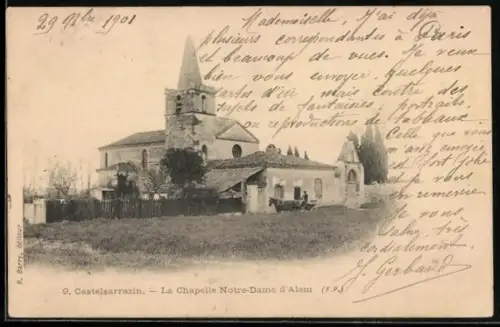 29 9bre 1901
Mademoiselle, J'ai déjà
plusieurs correspondantes à Paris
et beaucoup de vues. Je veux
bien vous envoyer quelques
cartes d'ici mais contre des
sujets de fantaisies, portraits,
ou reproductions de tableaux.
Celle que vous
m'avez envoyée
est fort jolie
je vous
en remercie
Je vous
salue très
cordialement.
J. Gerbaud
R. Barry, éditeur
9. Castelsarrazin. — La Chapelle Notre-Dame d'Alem (T.-G.)